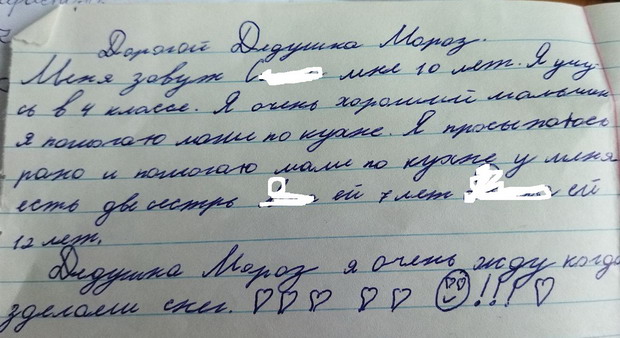 Дорогой Дедушка Мороз.
Меня зовут С мне 10 лет. Я учу-
сь в 4 классе. Я очень хороший мальчик
я помогаю маме по кухне. Я просыпаюсь
рано и помогаю маме по кухне у меня
есть две сестры ей 7 лет ей
12 лет.
Дедушка Мороз я очень жду когда
зделаеш снег. ♡♡♡ ♡♡ !!! ♡